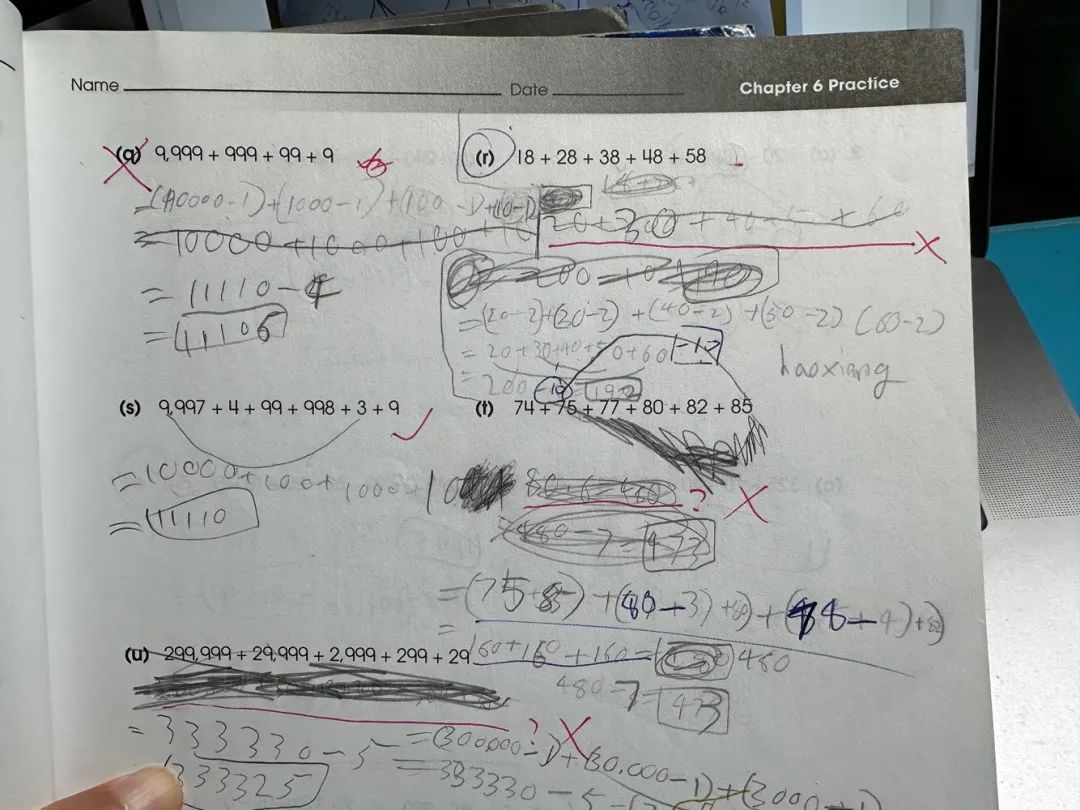 Name
Date
Chapter 6 Practice
(q) 9,999 + 999 + 99 + 9
=(10000-1)+(1000-1)+(100-1)+(10-1)
=10000+1000+100+10
=11110-4
=11106
(r) 18 + 28 + 38 + 48 + 58
=(20-2)+(30-2)+(40-2)+(50-2)(60-2)
=20+30+40+50+60-10
=200-10=192
haoxiang
(s) 9,997 + 4 + 99 + 998 + 3 + 9
=10000+100+1000+10
=11110
(t) 74 + 75 + 77 + 80 + 82 + 85
?
480-7=473
=(75+85)+(80-3)+80)+(
=
160+160+160=
480
480-7=473
(u) 299,999 + 29,999 + 2,999 + 299 + 29
?
=333330-5
333325
=(300000-1)+(30,000-1)+(3000-1)
=333330-5=